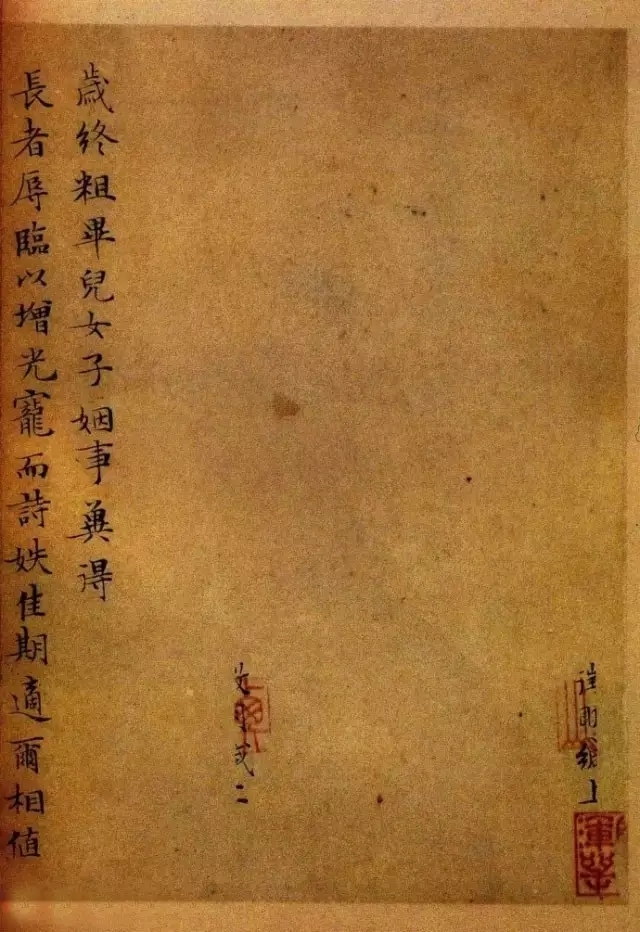 歲終粗畢兒女子姻事冀得
長者辱臨以增光寵而詩妷佳期適爾相值